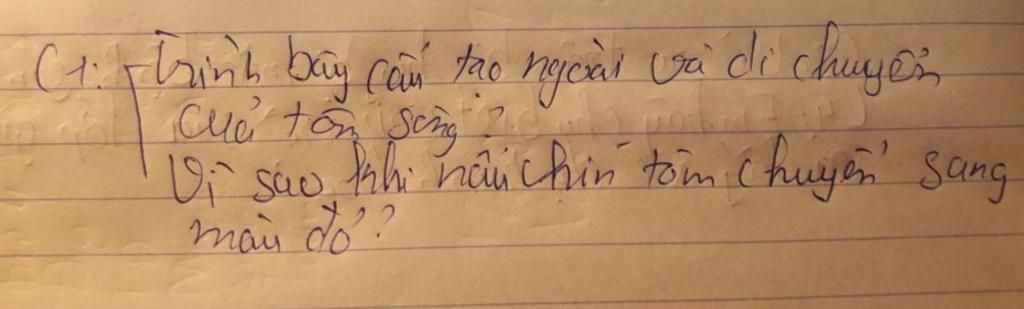 C1: Trình bày cấu tạo ngoài và di chuyển
của tôm sông?
Vì sao khi nấu chín tôm chuyển sang
màu đỏ?